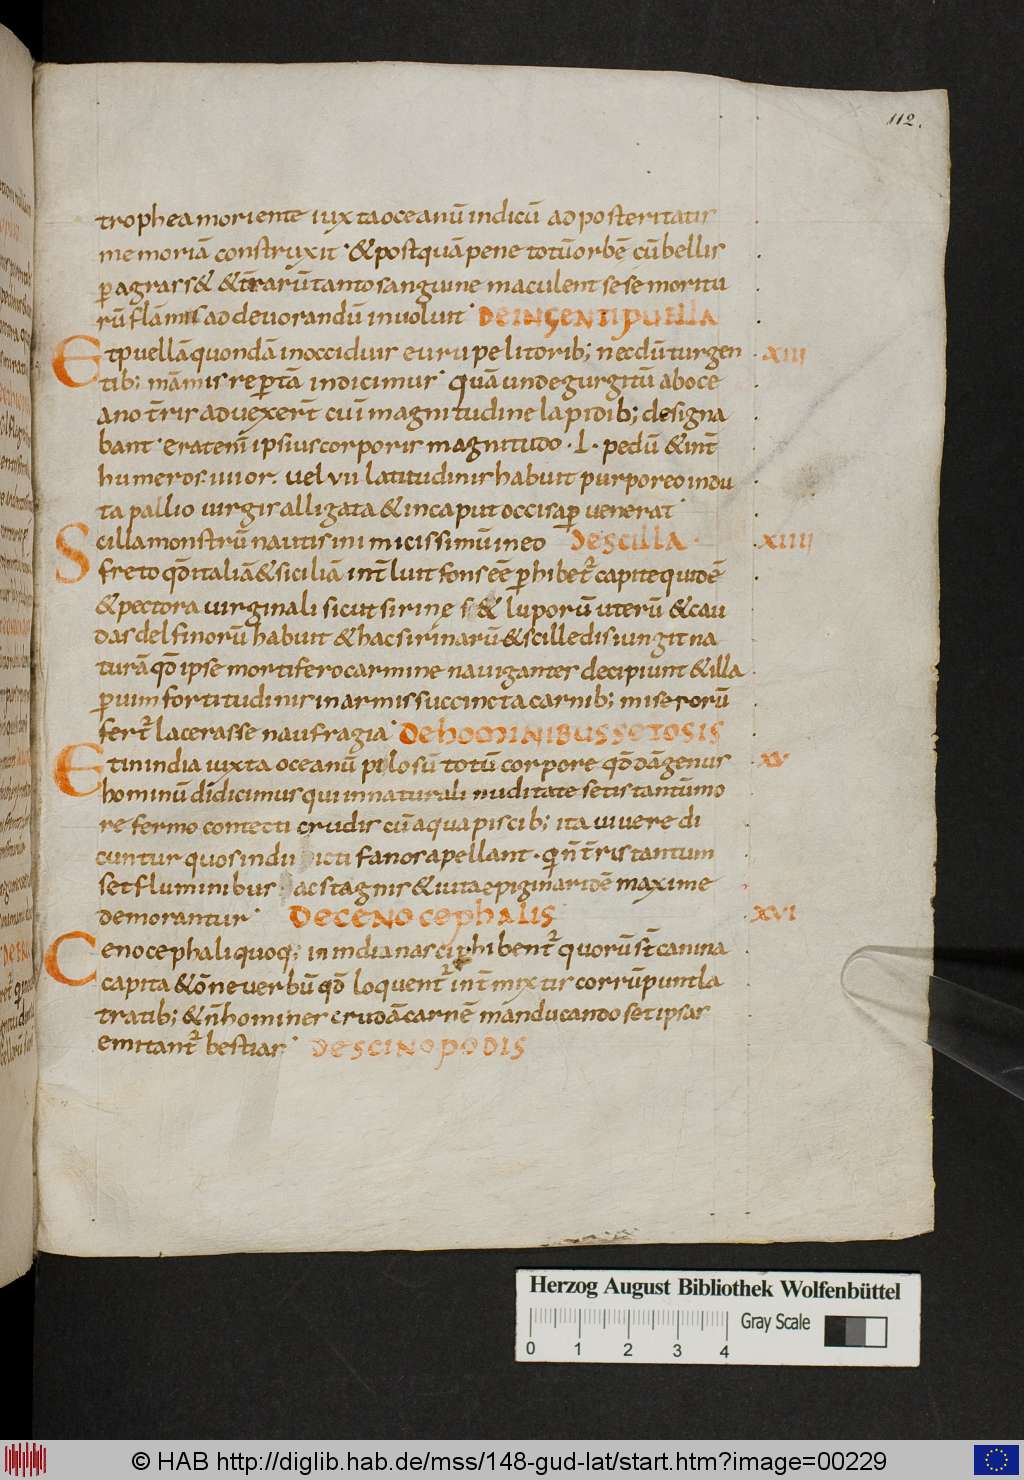 112.
trophea moriente iuxta oceanū indicū ad posteritatis
memoriā construxit · & postquā pene totū orbē cū bellis
ꝑagrass& & t̄rarū tanto sanguine maculent sese moritu
rū flāmis ad deuorandū inuoluit · DE INGENTI PUELLA
Et puellā quondā in occiduis europe litorib; necdū turgen XIII
tib; māmis reꝑtā indicimus · quā unde gurgitū ab oce
ano t̄ris aduexer̄t cui magnitudine lapidib; designa
bant · erat eni ipsius corporis magnitudo · L · pedū & int̄
humeros · iiii or · uel vii latitudinis habuit purpureo indu
ta pallio uirgis alligata & in caput occisa ꝑuenerat
Scilla monstrū nautis inimicissimū in eo DE SCILLA · XIIII
freto qđ italiā & siciliā int̄luit fons eē ꝑhibet᷑ capite quidē
& pectora uirginali sicut sirine s& luporū uterū & cau
das delfinorū habuit & hac sirinarū & scille disiungit na
turā qđ ipse mortifero carmine nauigantes decipiunt & illa
ꝑ uim fortitudinis in armis succincta carnib; miserorū
fert᷑ lacerasse naufragia · DE HOMINIBUS SETOSIS
Et in india iuxta oceanū pilosū totū corpore qđdā genus XV
hominū didicimus qui in naturali nuditate setis tantū mo
re fermo contecti crudis cū aqua piscib; ita uiuere di
cuntur quos indu icti fanos apellant · qi n̄ t̄ris tantum
set fluminibus ac stagnis & iuita epigmaridē maxime
demorantur · DE CENOCEPHALIS XVI
Cenocephali quoq; in india nasci ꝑhibent᷑ quorū st̄ canina
capita & ōne uerbū qđ loquent᷑ int̄mixtis corrūpunt la
tratib; & n̄ homines crudā carnē manducando set ipsas
emitant᷑ bestias · DE SCINOPODIS
Herzog August Bibliothek Wolfenbüttel
0 1 2 3 4 Gray Scale
© HAB http://diglib.hab.de/mss/148-gud-lat/start.htm?image=00229